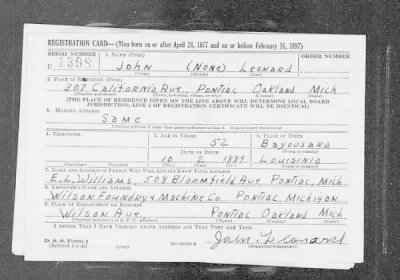 REGISTRATION CARD—(Men born on or after April 28, 1877 and on or before February 16, 1897)
SERIAL NUMBER 1. NAME (Print) ORDER NUMBER
U 1398 John (None) Leonard
(First) (Middle) (Last)
2. PLACE OF RESIDENCE (Print)
307 California Ave., Pontiac Oakland Mich
(Number and street) (Town, township, village, or city) (County) (State)
[THE PLACE OF RESIDENCE GIVEN ON THE LINE ABOVE WILL DETERMINE LOCAL BOARD
JURISDICTION; LINE 2 OF REGISTRATION CERTIFICATE WILL BE IDENTICAL]
3. MAILING ADDRESS
Same
4. TELEPHONE 5. AGE IN YEARS 6. PLACE OF BIRTH
52 Bayousara
DATE OF BIRTH
10 2 1889 Louisinia
(Mo.) (Day) (Yr.)
7. NAME AND ADDRESS OF PERSON WHO WILL ALWAYS KNOW YOUR ADDRESS
E.L. Williams, 508 Bloomfield Ave Pontiac, Mich.
8. EMPLOYER'S NAME AND ADDRESS
Wilson Foundry & Machine Co. Pontiac, Michigan
9. PLACE OF EMPLOYMENT OR BUSINESS
Wilson Ave. Pontiac Oakland Mich
I AFFIRM THAT I HAVE VERIFIED ABOVE ANSWERS AND THAT THEY ARE TRUE.
D. S. S. Form 1
(Revised 4-1-42) (over) John Leonard